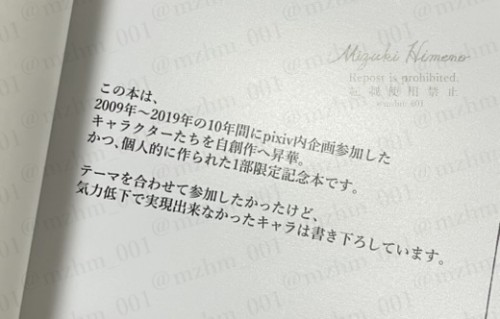 Mizuki Himeno
Repost is prohibited.
@mzhm_001
この本は、
2009年～2019年の10年間にpixiv内企画参加した
キャラクターたちを自創作へ昇華。
かつ、個人的に作られた1部限定記念本です。
テーマを合わせて参加したかったけど、
気力低下で実現出来なかったキャラは書き下ろしています。
@mzhm_001